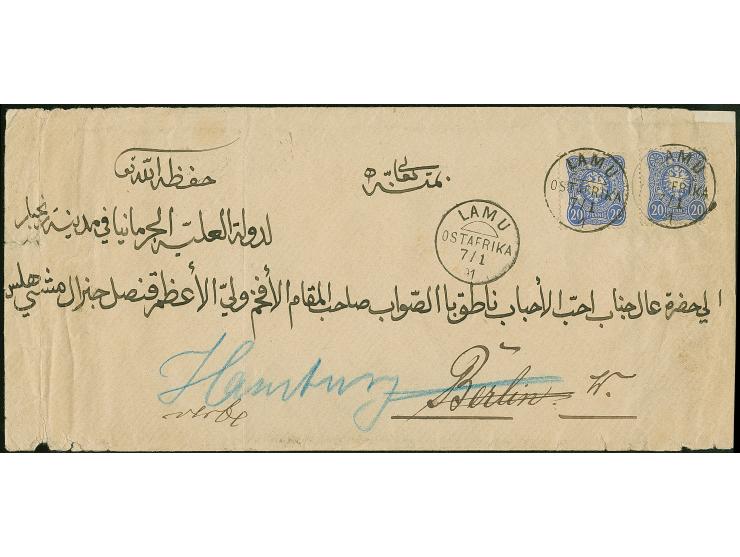 حفظه الله تع
بمنّه تعالى
LAMU
OSTAFRIKA
7/1
20 PFENNIG 20
LAMU
OSTAFRIKA
7/1
20 PFENNIG 20
لدولة العلية الجرمانيا في مدينة
LAMU
OSTAFRIKA
7/1
91
الى حضرة عال جناب احب الأحباب ناطق باالصواب صاحب المقام الأفخم وليّ الأعظم قنصل جنرال
Hamburg
Berlin W.